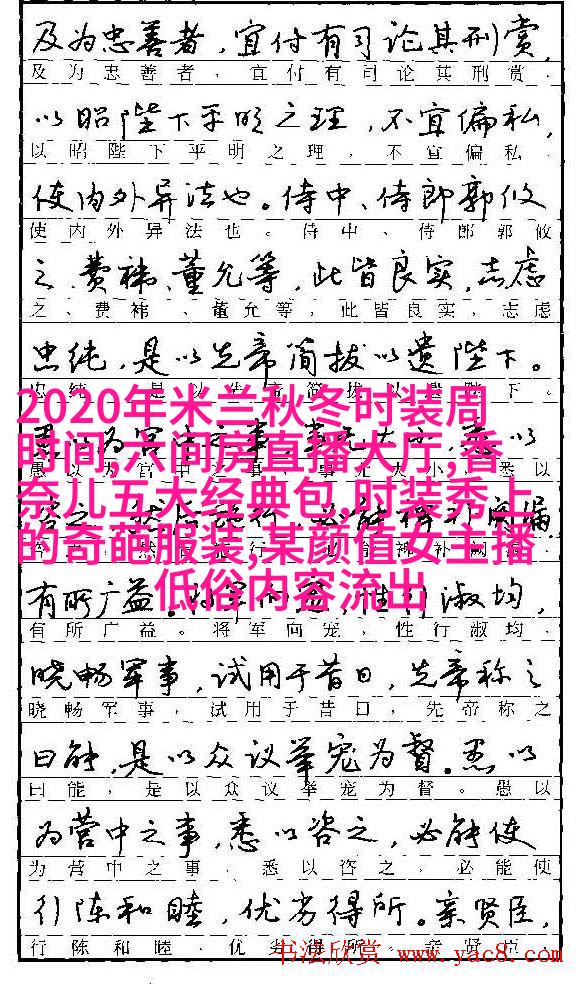 及为忠善者，宜付有司论其刑赏，
及为忠善者，宜付有司论其刑赏，
以昭陛下平明之理，不宜偏私，
以昭陛下平明之理，不宜偏私，
使内外异法也。侍中、侍郎郭攸
使内外异法也。侍中、侍郎郭攸
之、费祎、董允等，此皆良实，志虑
之、费祎、董允等，此皆良实，志虑
忠纯，是以先帝简拔以遗陛下。
2020年米兰秋冬时装周
时间,六间房直播大厅,香
奈儿五大经典包,时装秀上
的奇葩服装,某颜值女主播
低俗内容流出
有所广益。
有所广益。将军向宠，性行淑均，
晓畅军事，试用于昔日，先帝称之
晓畅军事，试用于昔日，先帝称之
曰能，是以众议举宠为督。愚以
曰能，是以众议举宠为督。愚以
为营中之事，悉以咨之，必能使
为营中之事，悉以咨之，必能使
行阵和睦，优劣得所。亲贤臣，
行阵和睦，优劣得所。亲贤臣，
书法欣赏 www.yac8.com